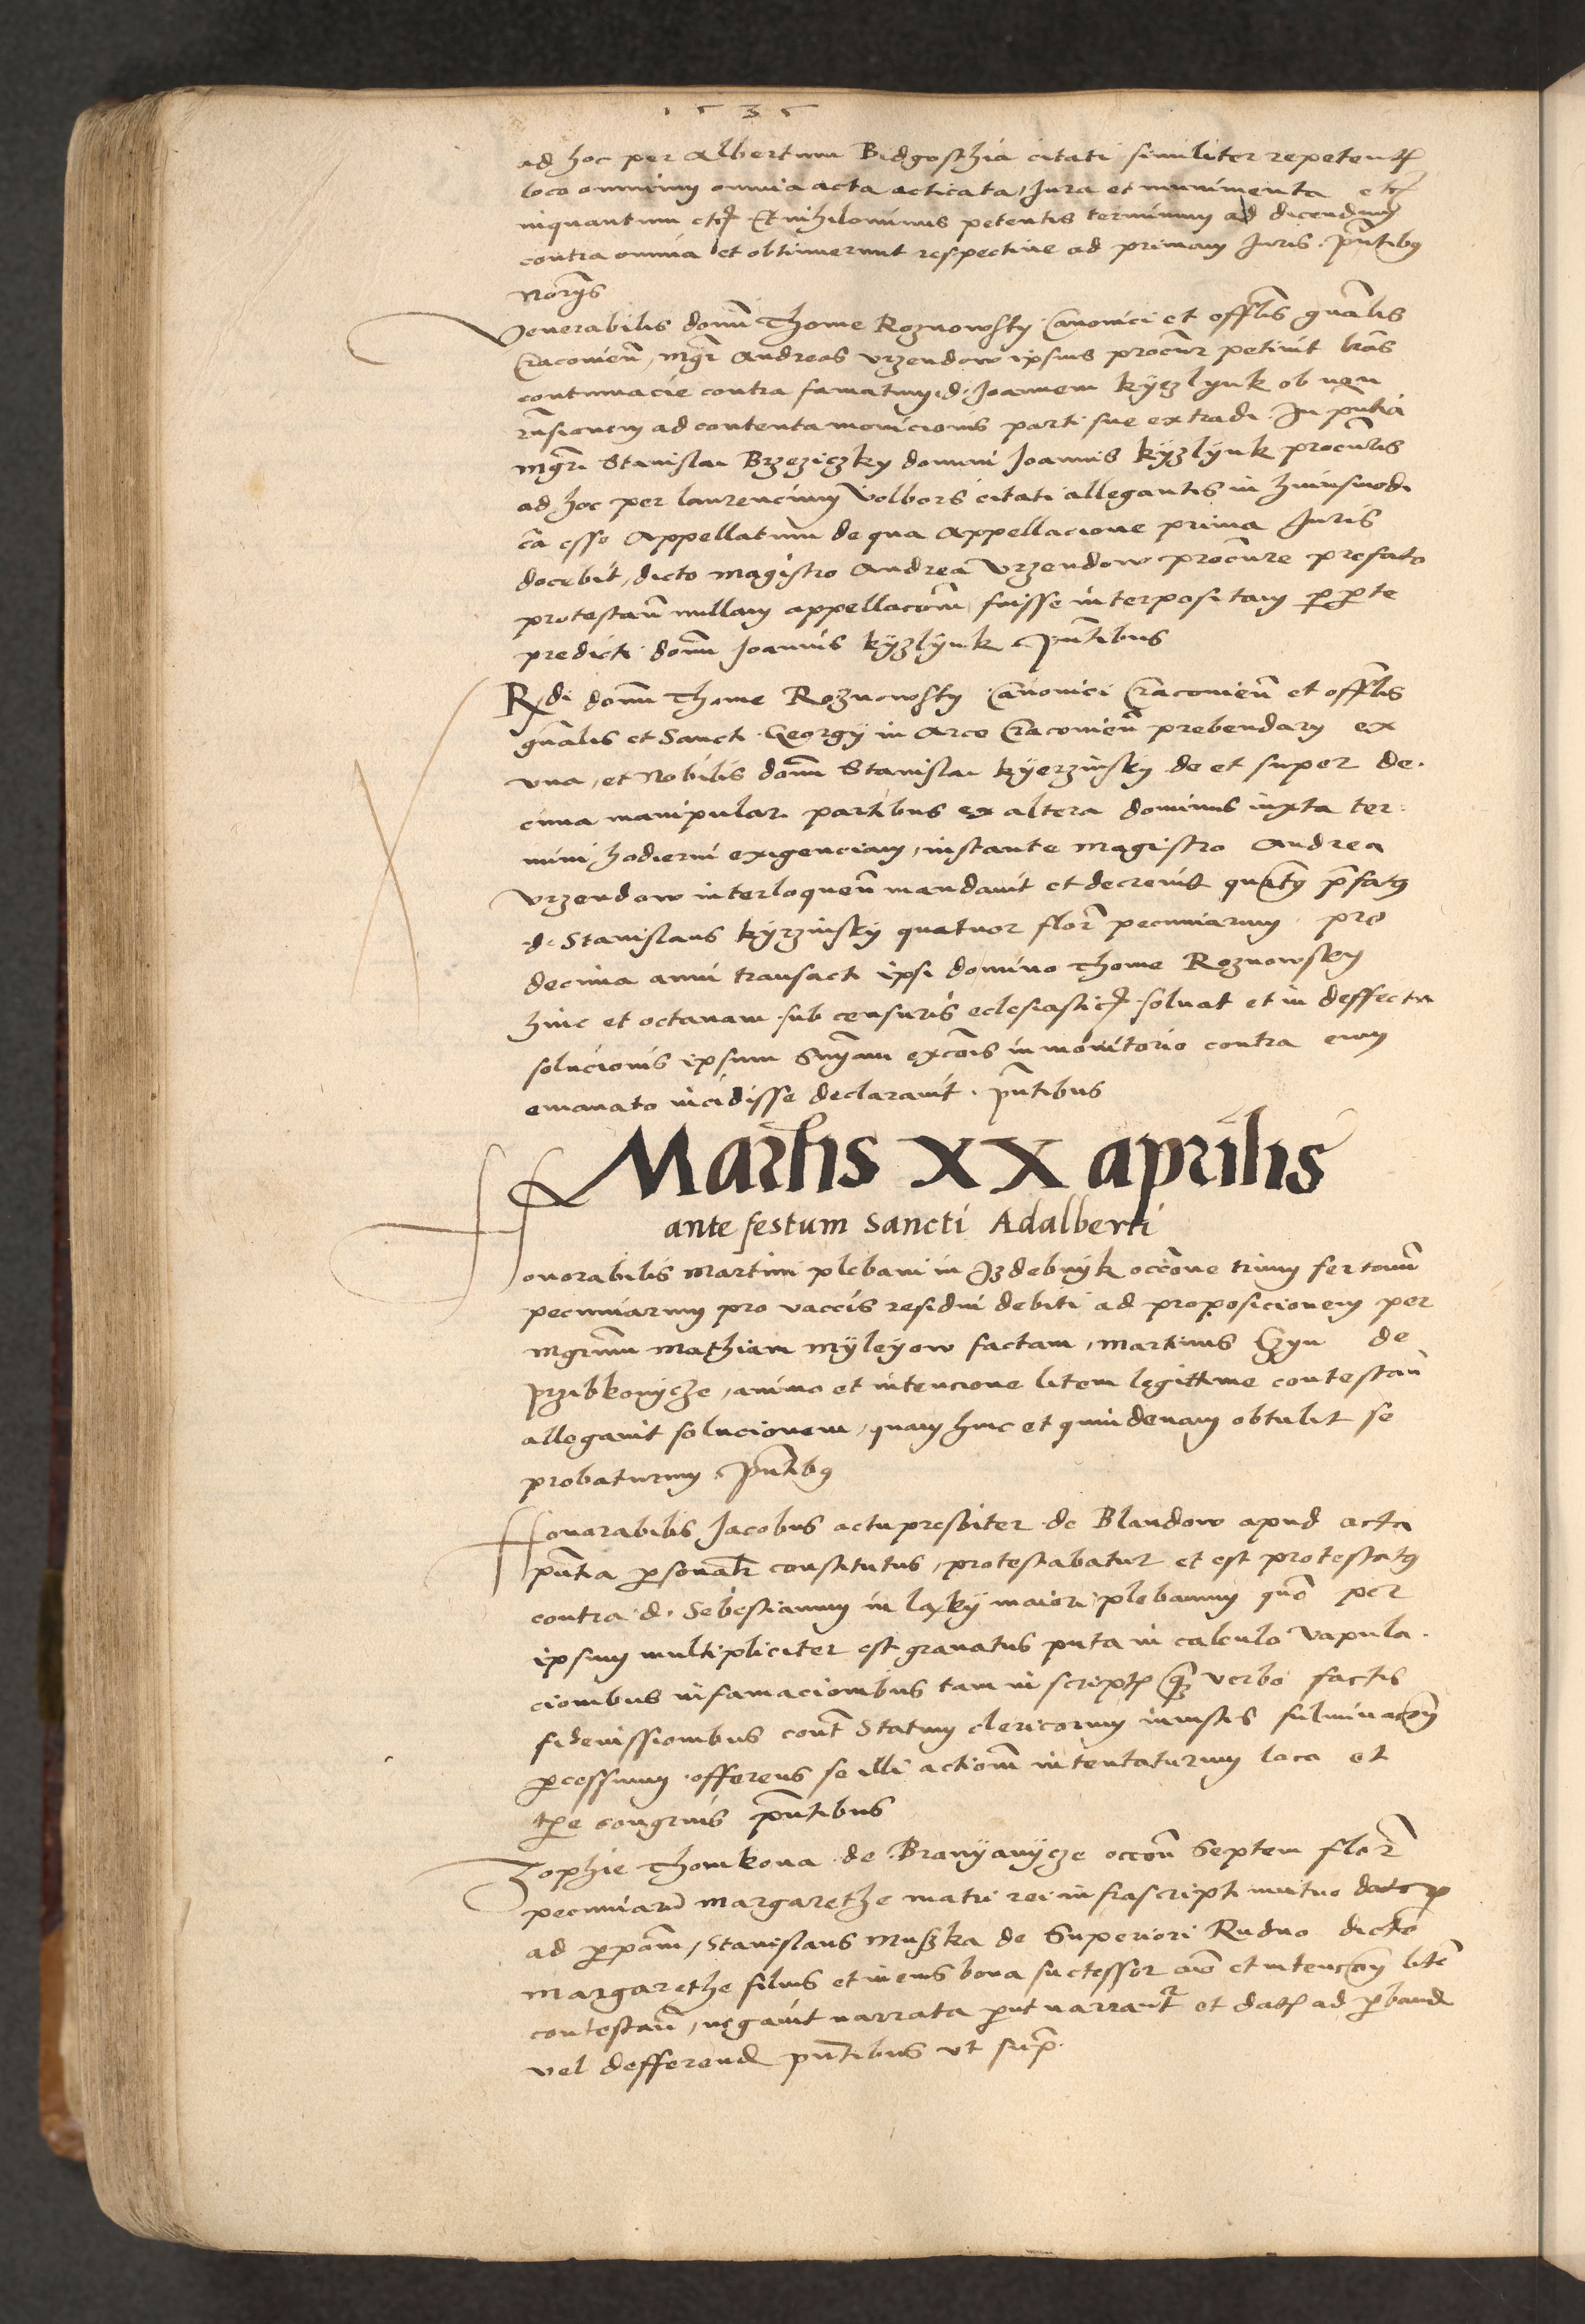 1535
ad hoc per Albertum Bidgosthia citati similiter repetentis
loco omnium omnia acta acticata, Jura et munimenta etc
inquantum etc Et nihilominus petentis terminum ad dicendum
contra omnia et obtinuerunt respective ad primam Juris. pntibus
Notariis
Venerabilis domini Thome Roznowsky Canonici et offlis gnalis
Cracovien, mgr Andreas Vrzendow ipsius procur petivit lras
contumacie contra famatum d. Joannem kÿczlynk ob non
rnsionem ad contenta monicionis parti sue extradi In pntia
mgri Stanislai Brzeziczky domini Joannis kÿzlÿnk procuris
ad hoc per laurencium Volbors citati allegantis in huiusmodi
ca esse Appellatum de qua Appellacione prima Juris
docebit, dicto magistro Andrea Vrzendow procure prefato
protestan nullam appellacionem fuisse interpositam p pte
predicti domini Joannis kÿzlÿnk pntibus
Rdi domini Thome Roznowsky Canonici Cracovien et offlis
gnalis et Sancti Georgÿ in Arce Cracovien prebendarÿ ex
vna, et Nobilis domini Stanislai kÿerzinsky de et super de.
cima manipulari partibus ex altera dominus iuxta ter:
mini hodierni exigenciam, instante magistro Andrea
Vrzendow interloquen mandavit et decrevit quatenus prefatus
d. Stanislaus kÿrzinsky quatuor flor pecuniarum pro
decima anni transacti ipsi domino Thome Roznowsky
hinc et octavam sub censuris eclesiasticis solvat et in deffectu
solucionis ipsum Snÿam excois in monitorio contra eum
emanato incidisse declaravit. pntibus
Martis XX aprilis
ante festum Sancti Adalberti
Honorabilis Martini plebani in Jzdebnÿk occone trium fertonum
pecuniarum pro vaccis residui debiti ad proposicionem per
mgrum Mathiam Mÿleÿow factam, Martinus Czyn de
Przibkonÿcze, animo et intencione litem legittime contestan
allegavit solucionem, quam hinc et quindenam obtulit se
probaturum. pntibus
Honorabilis Jacobus actu presbiter de Blandow apud acta
pntia psonalr constitutus, protestabatur et est protestatus
contra d. Sebestianum in laxky maiori plebanum quo per
ipsum multipliciter est gravatus puta in calculo vapula.
cionibus infamacionibus tam in scriptis quam verbo factis
contra Statum clericorum iniustis fulminacionem
pcessuum offerens se illi actionem intentaturum loco et
tpe congruis pntibus
Zophie Thomkova de Branÿanÿcze occon Septem flor
pecuniarum Margarethe matri rei infrascripti mutuo datorum
ad ppoem, Stanislaus Muszka de Superiori Rudno dicte
Margarethe filius et in eius bona successor aio et intencom lite
contestan, negavit narrata put narrantr et datis ad pband
vel defferend pntibus vt supra.